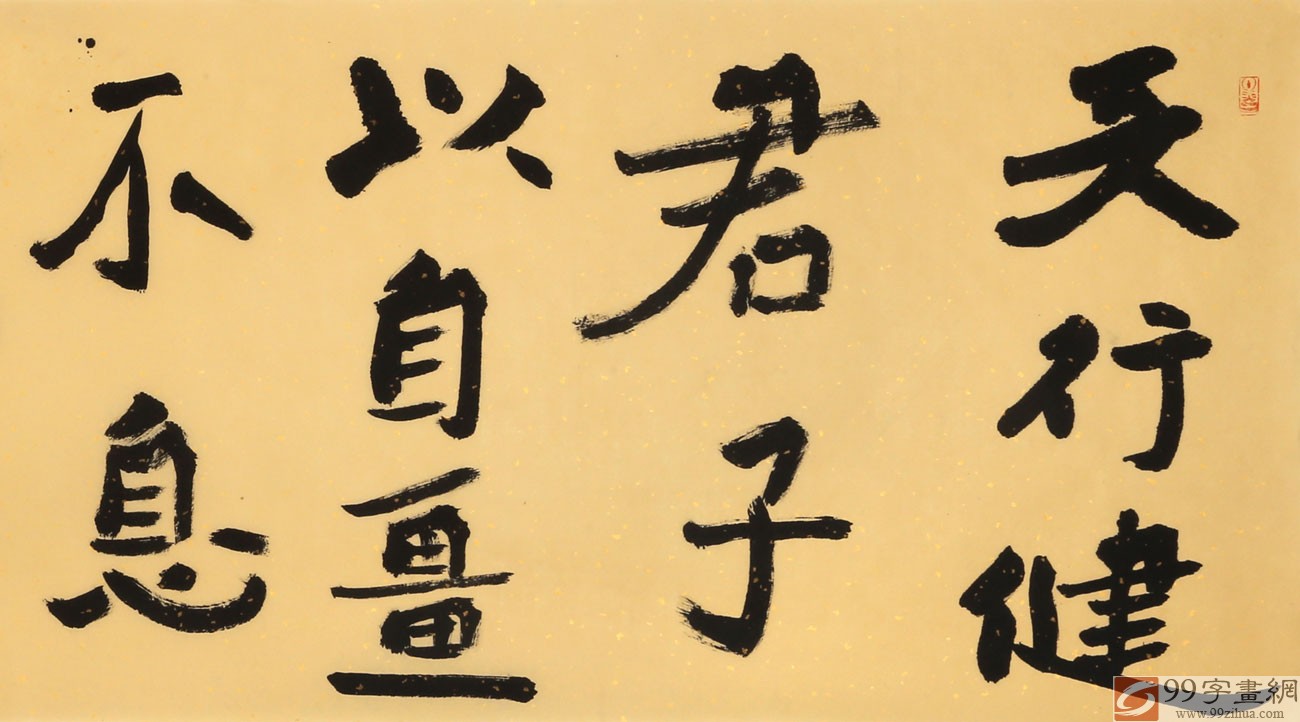 天行健
君子
以自畺
不息
99字畫網
www.99zihua.com